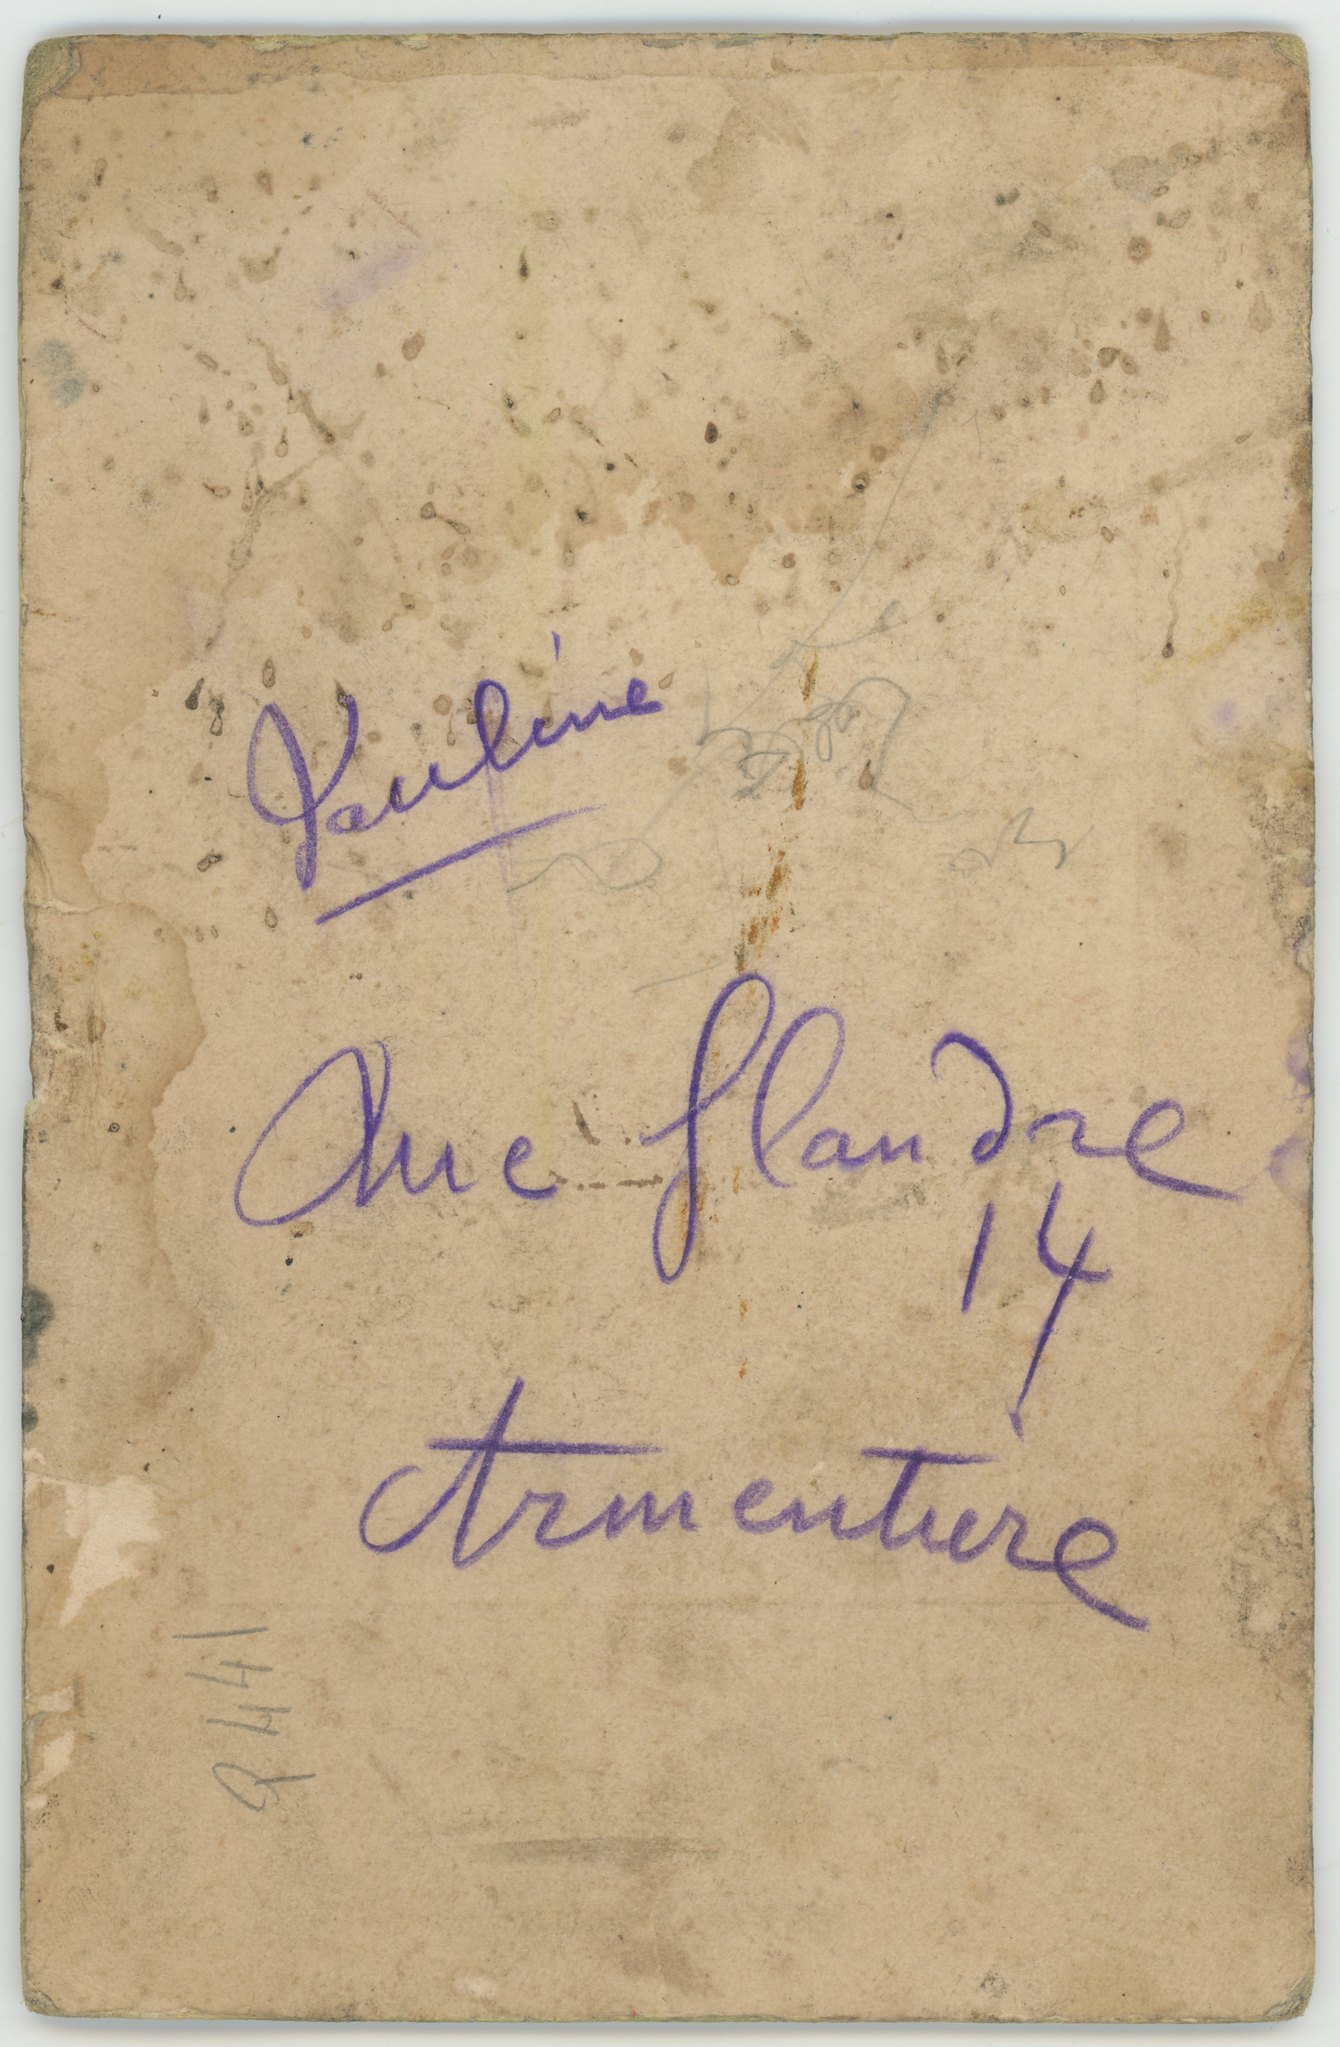 Pauline
Rue flandre
14
Armentière
2441